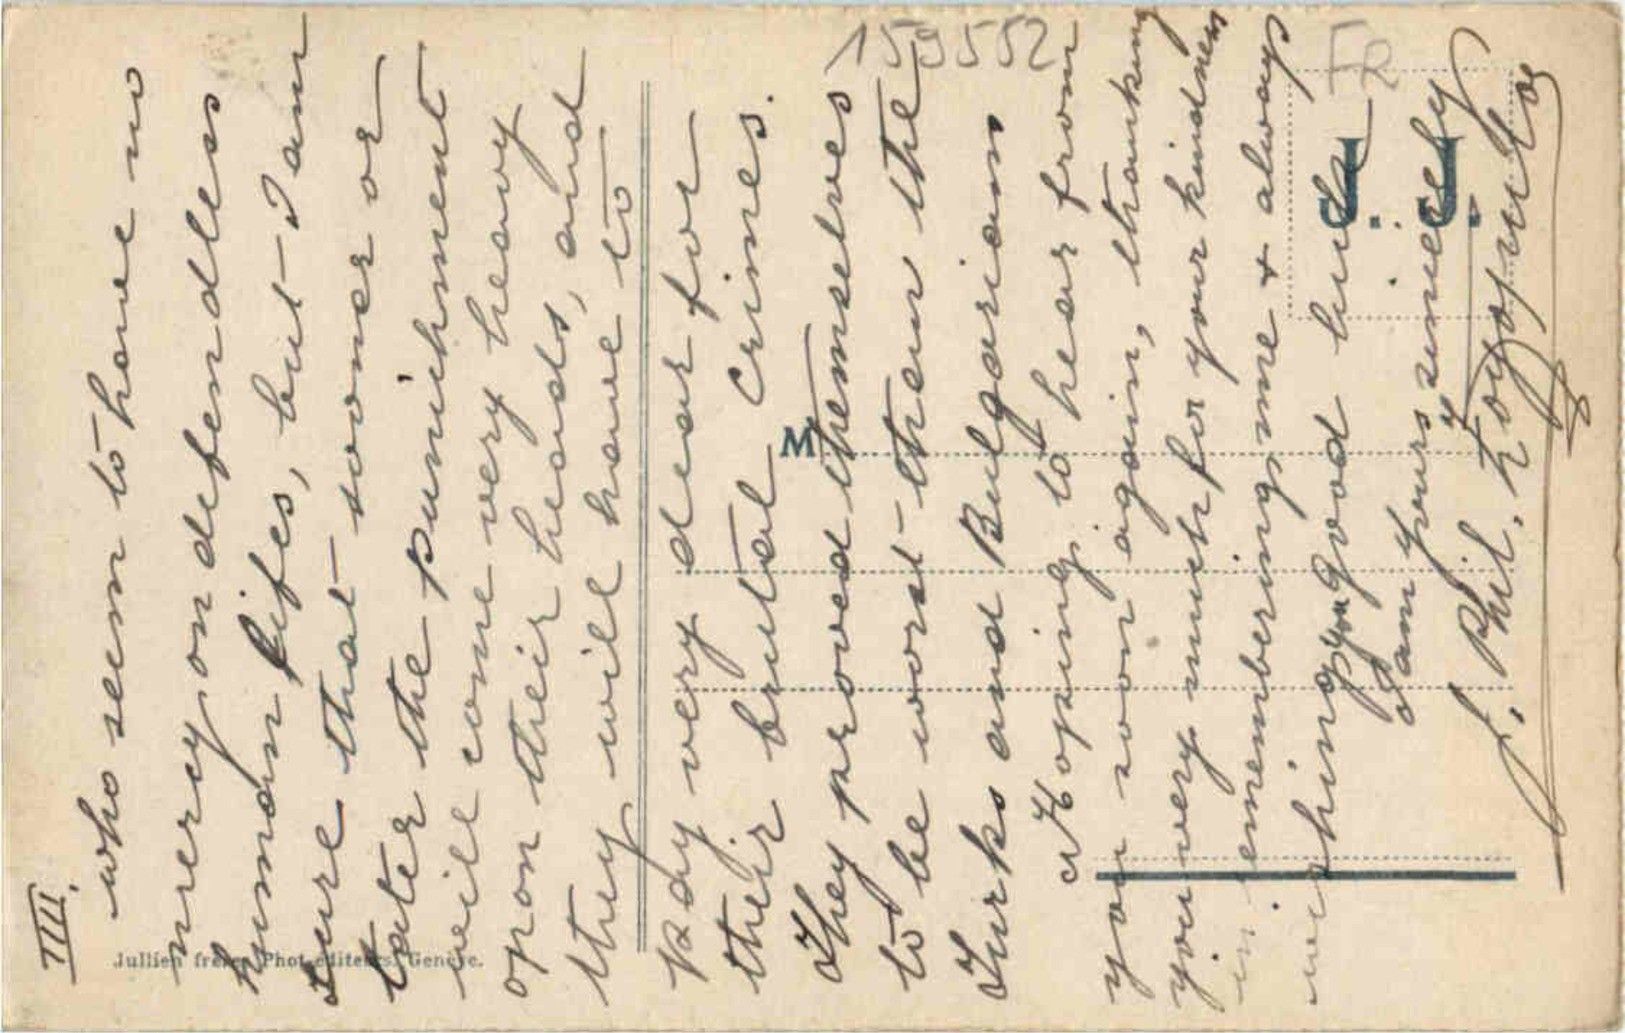 IIII.
who seem to have no
mercy on defendless
human lifes, but I am
sure that sooner or
later the punichment
will come very heavy
opon their heads, and
they will have to
pay very dear for
their brutal crimes.
They proved themselves
to be worst then the
Turks and Bulgarians
Hoping to hear from
you soon again, thanking
you very much for your kindness
in ememberingsme + always
wishing you good luck
I am yours sincerely
J. Phil.
159552
FR
J. J.
M
Jullien frères, Phot-éditeurs, Genève.